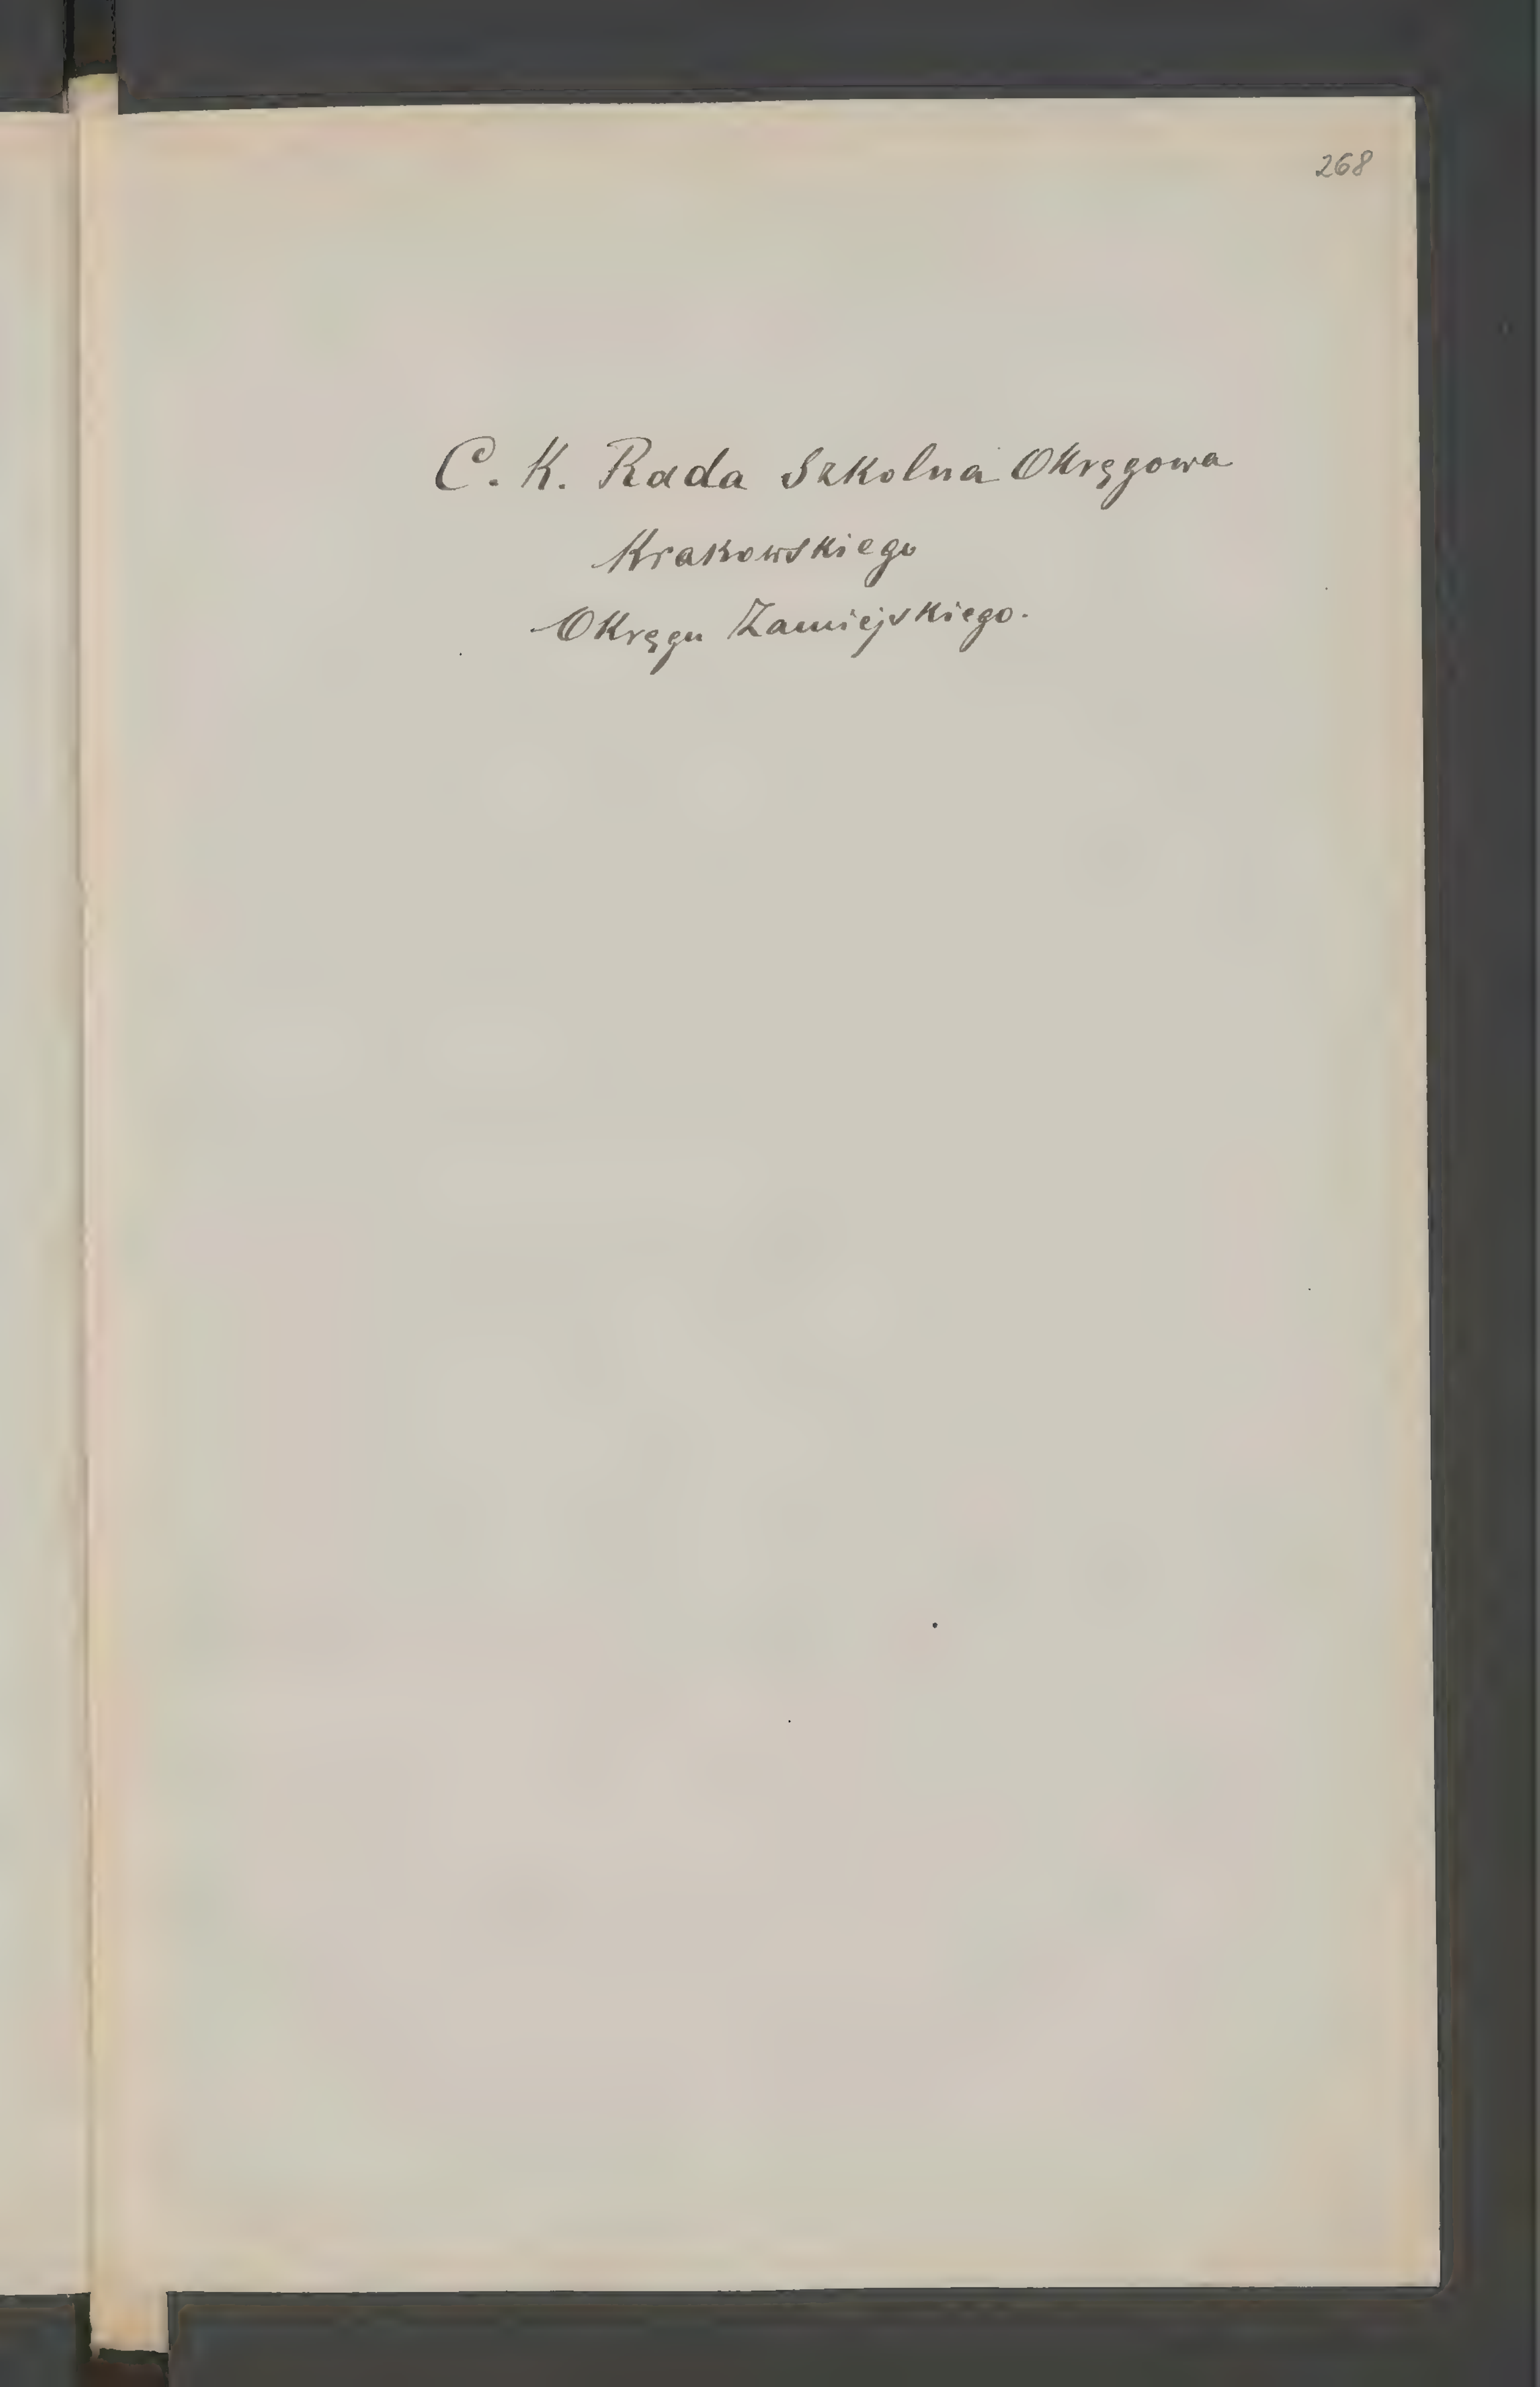 268
C. K. Rada Szkolna Okręgowa
Krakowskiego
Okręgu Zamiejskiego.